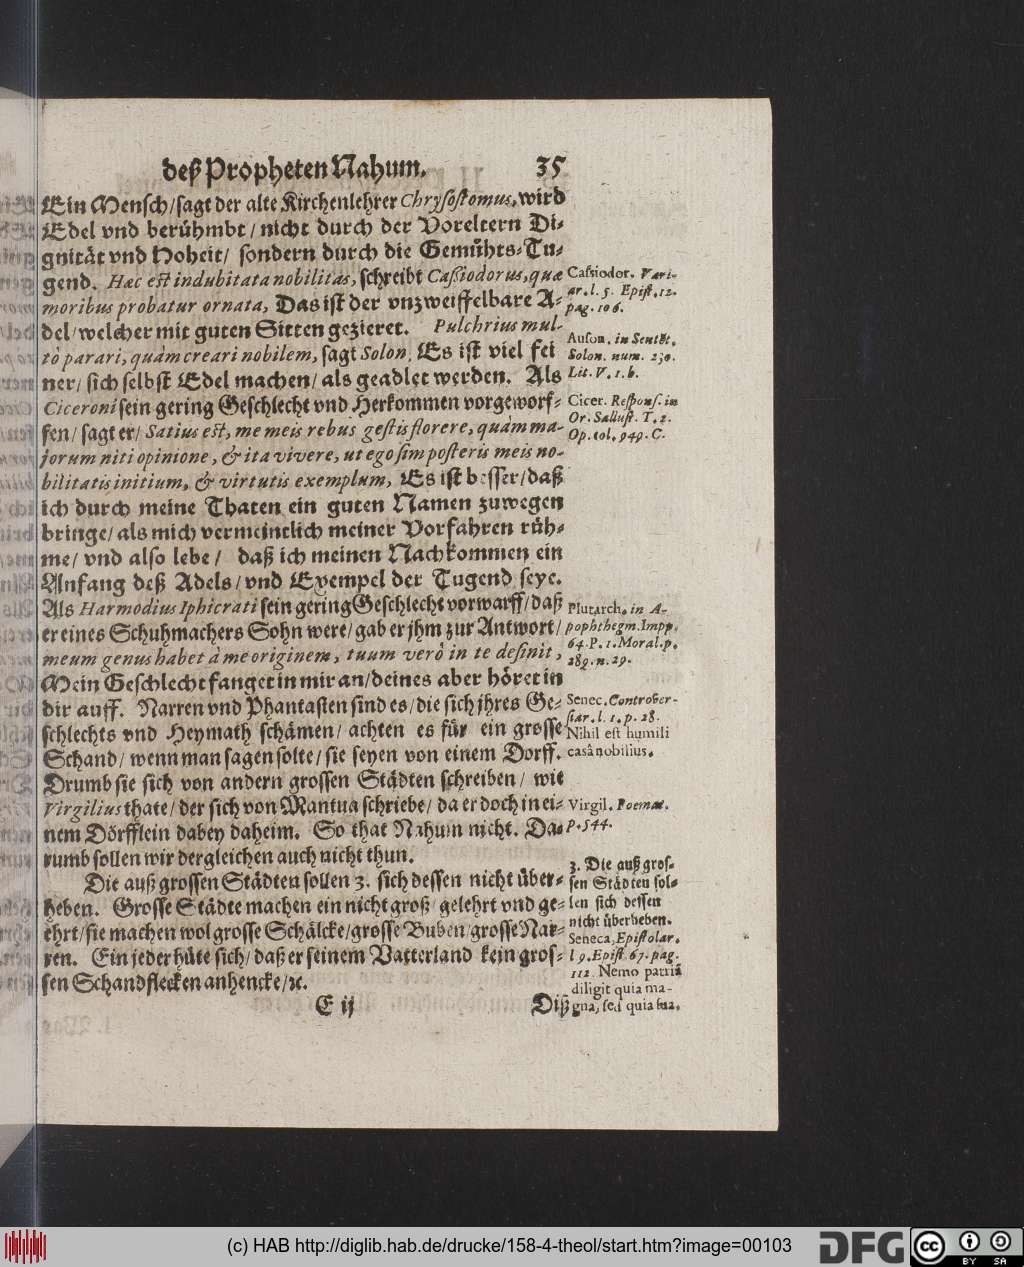 deß Propheten Nahum. 35
Ein Mensch/ sagt der alte Kirchenlehrer Chrysostomus, wird
Edel vnd berühmbt/ nicht durch der Voreltern Di-
gnität vnd Hoheit/ sondern durch die Gemühts-Tu-
gend. Hæc est indubitata nobilitas, schreibt Cassiodorus, quæ
moribus probatur ornata, Das ist der vnzweiffelbare A-
del/ welcher mit guten Sitten gezieret. Pulchrius mul-
tò parari, quàm creari nobilem, sagt Solon, Es ist viel fei
ner/ sich selbst Edel machen/ als geadlet werden. Als
Ciceroni sein gering Geschlecht vnd Herkommen vorgeworf-
fen/ sagt er/ Satius est, me meis rebus gestis florere, quàm ma-
jorum niti opinione, & ita vivere, ut ego sim posteris meis no-
bilitatis initium, & virtutis exemplum, Es ist besser/ daß
ich durch meine Thaten ein guten Namen zuwegen
bringe/ als mich vermeintlich meiner Vorfahren rüh-
me/ vnd also lebe/ daß ich meinen Nachkommen ein
Anfang deß Adels/ vnd Exempel der Tugend seye.
Als Harmodius Iphicrati sein gering Geschlecht vorwarff/ daß
er eines Schuhmachers Sohn were/ gab er jhm zur Antwort/
meum genus habet à me originem, tuum verò in te desinit,
Mein Geschlecht fanget in mir an/ deines aber höret in
dir auff. Narren vnd Phantasten sind es/ die sich jhres Ge-
schlechts vnd Heymath schämen/ achten es für ein grosse
Schand/ wenn man sagen solte/ sie seyen von einem Dorff.
Drumb sie sich von andern grossen Städten schreiben/ wie
Virgilius thate/ der sich von Mantua schriebe/ da er doch in ei-
nem Dörfflein dabey daheim. So that Nahum nicht. Da-
rumb sollen wir dergleichen auch nicht thun.
Die auß grossen Städten sollen 3. sich dessen nicht über-
heben. Grosse Städte machen ein nicht groß/ gelehrt vnd ge-
ehrt/ sie machen wol grosse Schälcke/ grosse Buben/ grosse Nar-
ren. Ein jeder hüte sich/ daß er seinem Vatterland kein gros-
sen Schandflecken anhencke/ ꝛc.
E ij Diß
Cassiodor. Vari-
ar. l. 5. Epist. 12.
pag. 106.
Auson. in Sentẽt.
Solon. num. 230.
Lit. V. 1. b.
Cicer. Respons. in
Or. Sallust. T. 2.
Op. col. 949. C.
Plutarch. in A-
pophthegm. Impp.
64. P. 1. Moral. p.
289. n. 29.
Senec. Controver-
siar. l. 1. p. 28.
Nihil est humili
casâ nobilius.
Virgil. Poemat.
p. 544.
3. Die auß gros-
sen Städten sol-
len sich dessen
nicht überheben.
Seneca, Epistolar.
l 9. Epist. 67. pag.
112. Nemo patriã
diligit quia ma-
gna, sed quia sua.
(c) HAB http://diglib.hab.de/drucke/158-4-theol/start.htm?image=00103
DFG
cc BY SA